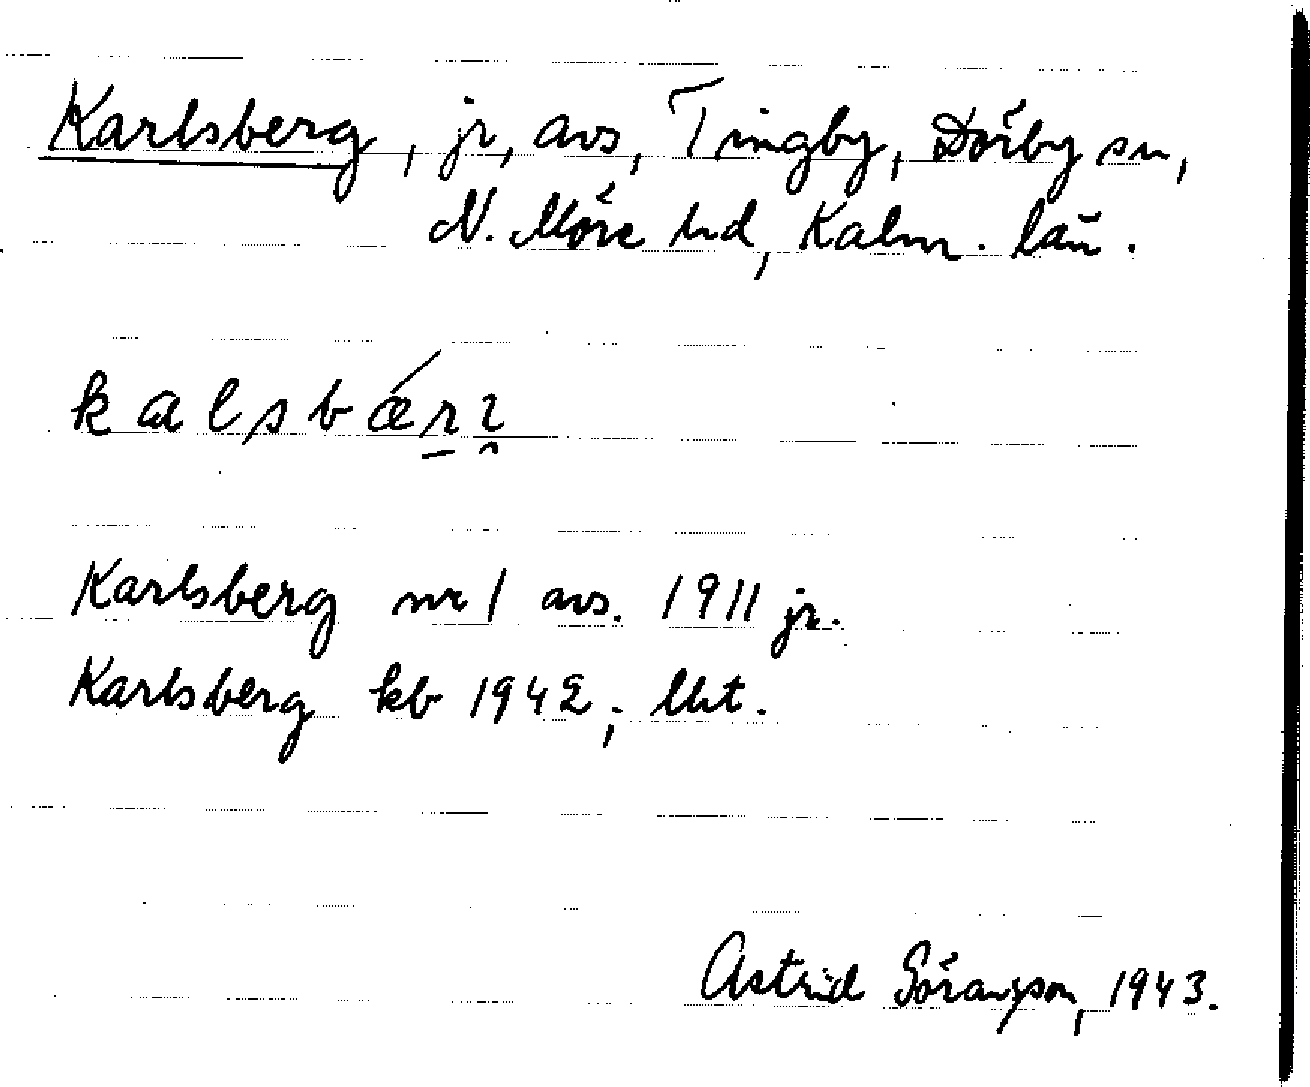 Karlsberg, jr, avs, Tingby, Dörby sn,
N. Möre hd, Kalm. län.
kalsbær
Karlsberg nr 1 avs. 1911 jr.
Karlsberg kb 1942;
Astrid Göransson, 1943.